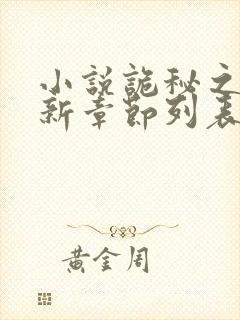 小説詭秘之
新章節列表
黃金周